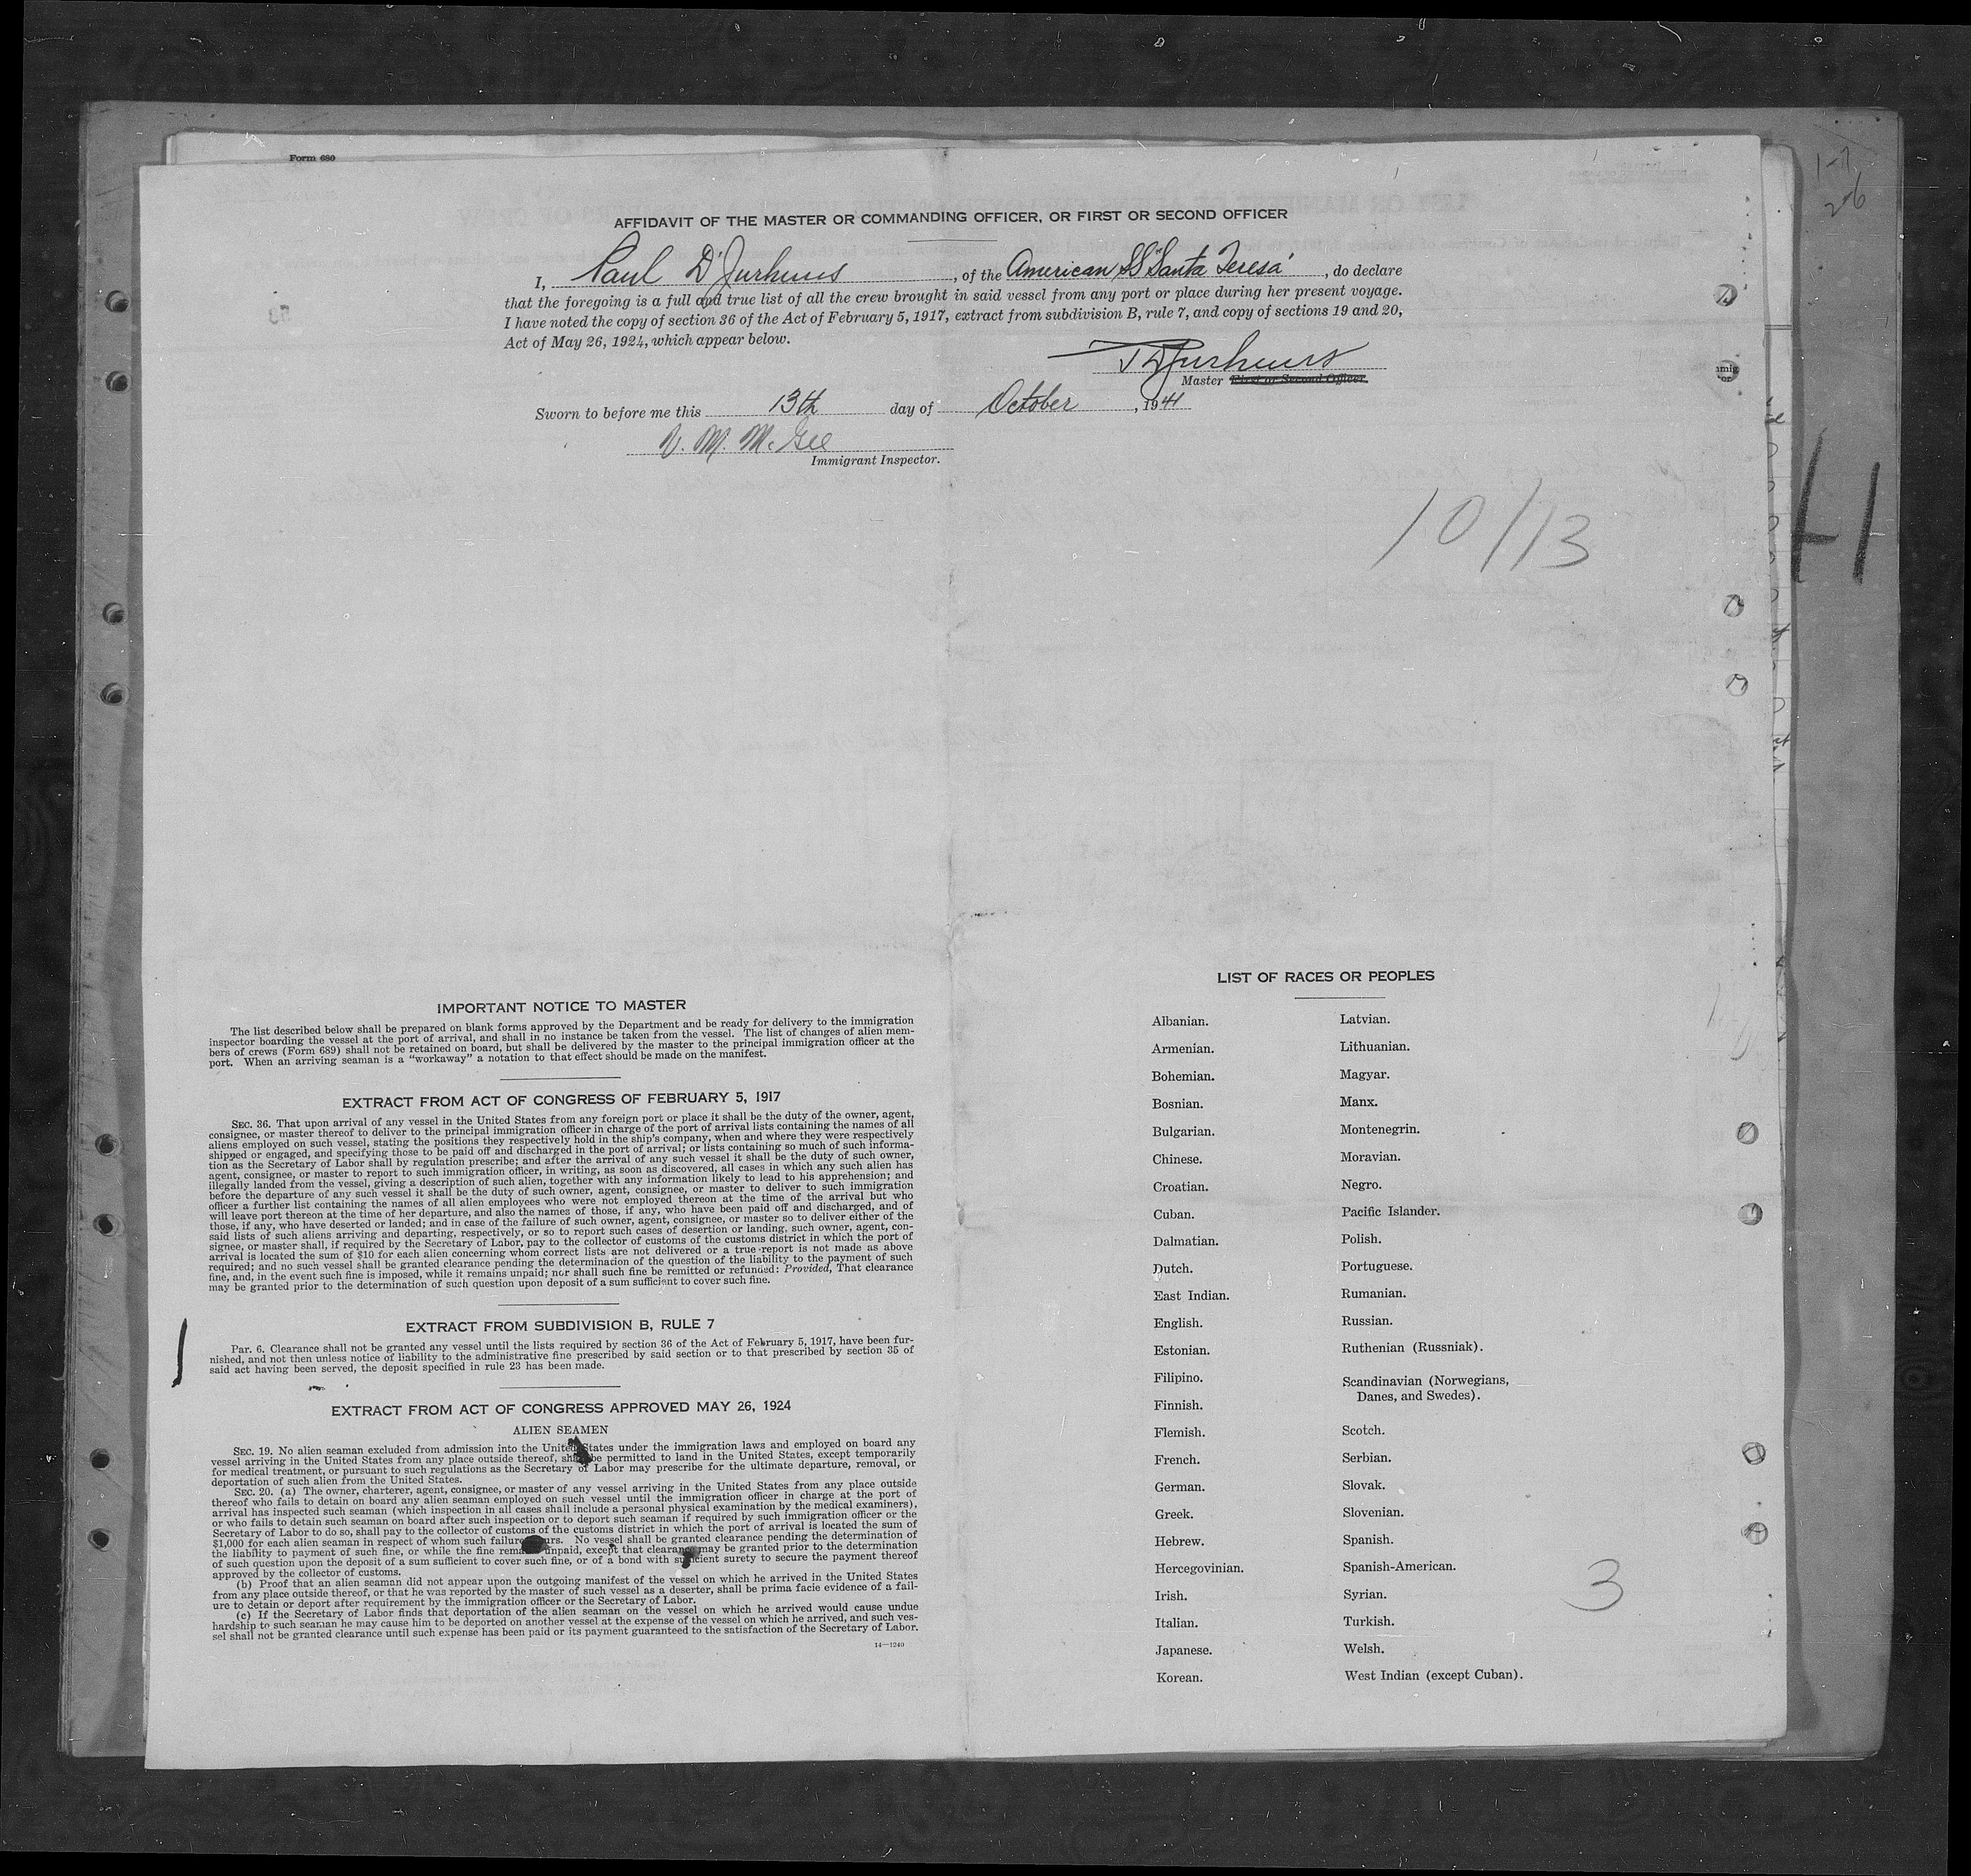 Form 680
1-7
2-6
AFFIDAVIT OF THE MASTER OR COMMANDING OFFICER, OR FIRST OR SECOND OFFICER
I, Paul D'Jurhuus, of the American SS "Santa Teresa", do declare
that the foregoing is a full and true list of all the crew brought in said vessel from any port or place during her present voyage.
I have noted the copy of section 36 of the Act of February 5, 1917, extract from subdivision B, rule 7, and copy of sections 19 and 20,
Act of May 26, 1924, which appear below.
Master First or Second Officer.
Sworn to before me this 13th day of October, 1941
V. M. McGee
Immigrant Inspector.
10/13
41
IMPORTANT NOTICE TO MASTER
The list described below shall be prepared on blank forms approved by the Department and be ready for delivery to the immigration
inspector boarding the vessel at the port of arrival, and shall in no instance be taken from the vessel. The list of changes of alien mem-
bers of crews (Form 689) shall not be retained on board, but shall be delivered by the master to the principal immigration officer at the
port. When an arriving seaman is a "workaway" a notation to that effect should be made on the manifest.
EXTRACT FROM ACT OF CONGRESS OF FEBRUARY 5, 1917
SEC. 36. That upon arrival of any vessel in the United States from any foreign port or place it shall be the duty of the owner, agent,
consignee, or master thereof to deliver to the principal immigration officer in charge of the port of arrival lists containing the names of all
aliens employed on such vessel, stating the positions they respectively hold in the ship's company, when and where they were respectively
shipped or engaged, and specifying those to be paid off and discharged in the port of arrival; or lists containing so much of such informa-
tion as the Secretary of Labor shall by regulation prescribe; and after the arrival of any such vessel it shall be the duty of such owner,
agent, consignee, or master to report to such immigration officer, in writing, as soon as discovered, all cases in which any such alien has
illegally landed from the vessel, giving a description of such alien, together with any information likely to lead to his apprehension; and
before the departure of any such vessel it shall be the duty of such owner, agent, consignee, or master to deliver to such immigration
officer a further list containing the names of all alien employees who were not employed thereon at the time of the arrival but who
will leave port thereon at the time of her departure, and also the names of those, if any, who have been paid off and discharged, and of
those, if any, who have deserted or landed; and in case of the failure of such owner, agent, consignee, or master so to deliver either of the
said lists of such aliens arriving and departing, respectively, or so to report such cases of desertion or landing, such owner, agent, con-
signee, or master shall, if required by the Secretary of Labor, pay to the collector of customs of the customs district in which the port of
arrival is located the sum of $10 for each alien concerning whom correct lists are not delivered or a true report is not made as above
required; and no such vessel shall be granted clearance pending the determination of the question of the liability to the payment of such
fine, and, in the event such fine is imposed, while it remains unpaid; nor shall such fine be remitted or refunded: Provided, That clearance
may be granted prior to the determination of such question upon deposit of a sum sufficient to cover such fine.
EXTRACT FROM SUBDIVISION B, RULE 7
Par. 6. Clearance shall not be granted any vessel until the lists required by section 36 of the Act of February 5, 1917, have been fur-
nished, and not then unless notice of liability to the administrative fine prescribed by said section or to that prescribed by section 35 of
said act having been served, the deposit specified in rule 23 has been made.
EXTRACT FROM ACT OF CONGRESS APPROVED MAY 26, 1924
ALIEN SEAMEN
SEC. 19. No alien seaman excluded from admission into the United States under the immigration laws and employed on board any
vessel arriving in the United States from any place outside thereof, shall be permitted to land in the United States, except temporarily
for medical treatment, or pursuant to such regulations as the Secretary of Labor may prescribe for the ultimate departure, removal, or
deportation of such alien from the United States.
SEC. 20. (a) The owner, charterer, agent, consignee, or master of any vessel arriving in the United States from any place outside
thereof who fails to detain on board any alien seaman employed on such vessel until the immigration officer in charge at the port of
arrival has inspected such seaman (which inspection in all cases shall include a personal physical examination by the medical examiners),
or who fails to detain such seaman on board after such inspection or to deport such seaman if required by such immigration officer or the
Secretary of Labor to do so, shall pay to the collector of customs of the customs district in which the port of arrival is located the sum of
$1,000 for each alien seaman in respect of whom such failure occurs. No vessel shall be granted clearance pending the determination of
the liability to payment of such fine, or while the fine remains unpaid, except that clearance may be granted prior to the determination
of such question upon the deposit of a sum sufficient to cover such fine, or of a bond with sufficient surety to secure the payment thereof
approved by the collector of customs.
(b) Proof that an alien seaman did not appear upon the outgoing manifest of the vessel on which he arrived in the United States
from any place outside thereof, or that he was reported by the master of such vessel as a deserter, shall be prima facie evidence of a fail-
ure to detain or deport after requirement by the immigration officer or the Secretary of Labor.
(c) If the Secretary of Labor finds that deportation of the alien seaman on the vessel on which he arrived would cause undue
hardship to such seaman he may cause him to be deported on another vessel at the expense of the vessel on which he arrived, and such ves-
sel shall not be granted clearance until such expense has been paid or its payment guaranteed to the satisfaction of the Secretary of Labor.
14—1240
LIST OF RACES OR PEOPLES
Albanian.
Armenian.
Bohemian.
Bosnian.
Bulgarian.
Chinese.
Croatian.
Cuban.
Dalmatian.
Dutch.
East Indian.
English.
Estonian.
Filipino.
Finnish.
Flemish.
French.
German.
Greek.
Hebrew.
Hercegovinian.
Irish.
Italian.
Japanese.
Korean.
Latvian.
Lithuanian.
Magyar.
Manx.
Montenegrin.
Moravian.
Negro.
Pacific Islander.
Polish.
Portuguese.
Rumanian.
Russian.
Ruthenian (Russniak).
Scandinavian (Norwegians,
Danes, and Swedes).
Scotch.
Serbian.
Slovak.
Slovenian.
Spanish.
Spanish-American.
Syrian.
Turkish.
Welsh.
West Indian (except Cuban).
3